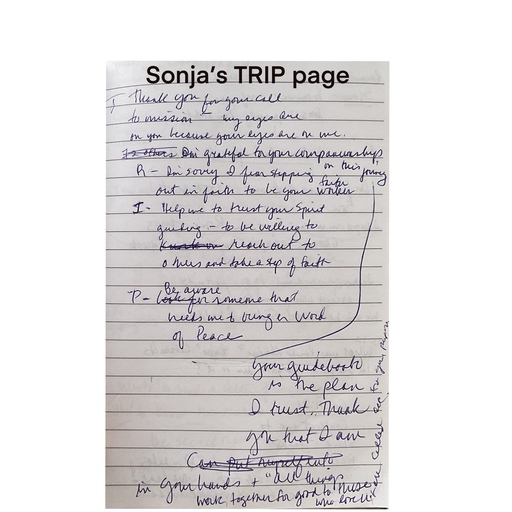 Sonja's TRIP page
T Thank you for your call
to mission — my eyes are
on you because your eyes are on me.
I'm grateful for your companionship
on this journey
R - I'm sorry I fear stepping
out in faith to be your worker
I - Help me to trust your Spirit
guiding - to be willing to
reach out to
others and take a step of faith
Be aware
P - for someone that
needs me to bring a word
of Peace
Your guidebook
is the plan
I trust. Thank
you that I am
Can put myself into
in your hands + "all things
work together for good to those
who love